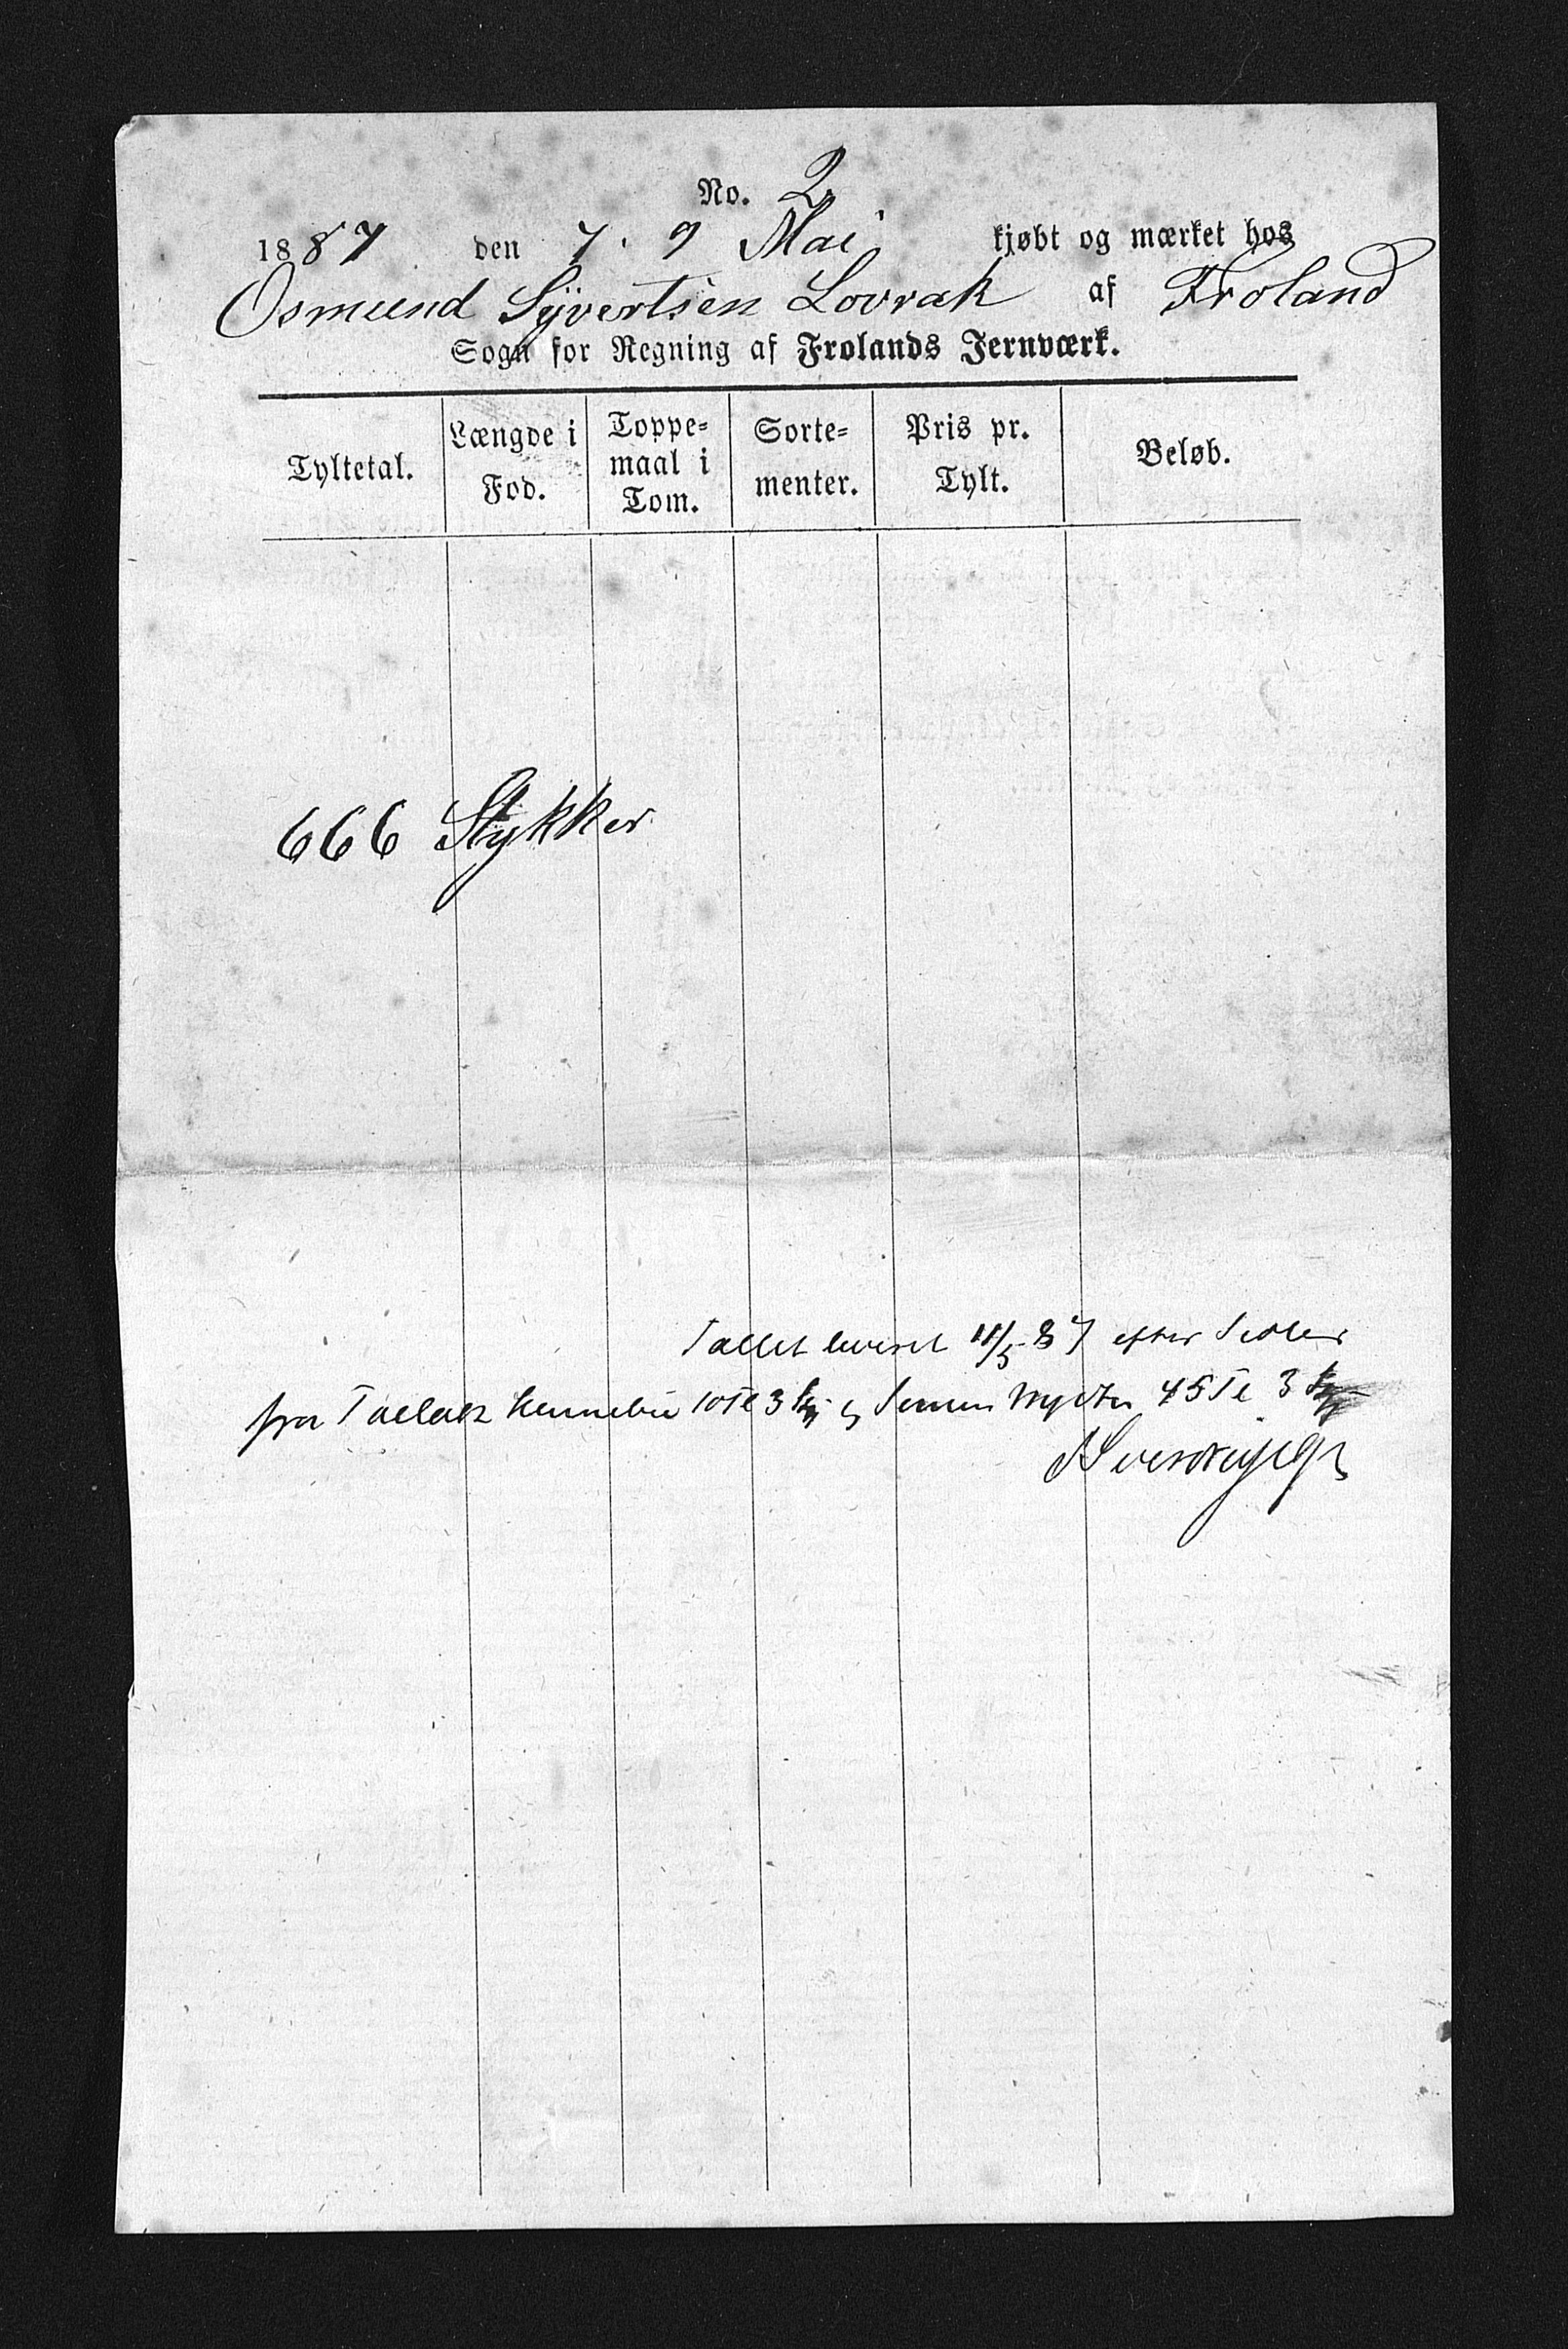 No. 2
1887 den 7. 9 Mai kjøbt og mærket hos
Osmund Syvertsen Lovrak af Froland
Sogn for Regning af Frolands Jernværk.
Tyltetal. Længde i Fod. Toppe-maal i Tom. Sorte-menter. Pris pr. Tylt. Beløb.
666 Stykker
Tallet leveret 11/5-87 efter Sedler
fra 10 Tl 3 45 Tl 3